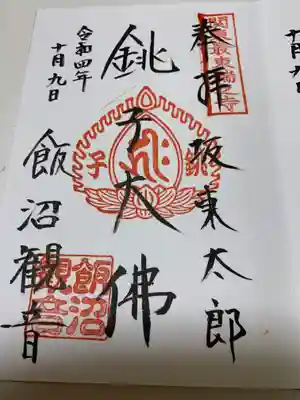 関東最東端之寺
奉拝 坂東太郎
銚子大佛
銚子
令和四年
十月九日
飯沼観音
飯沼観音
十月九日